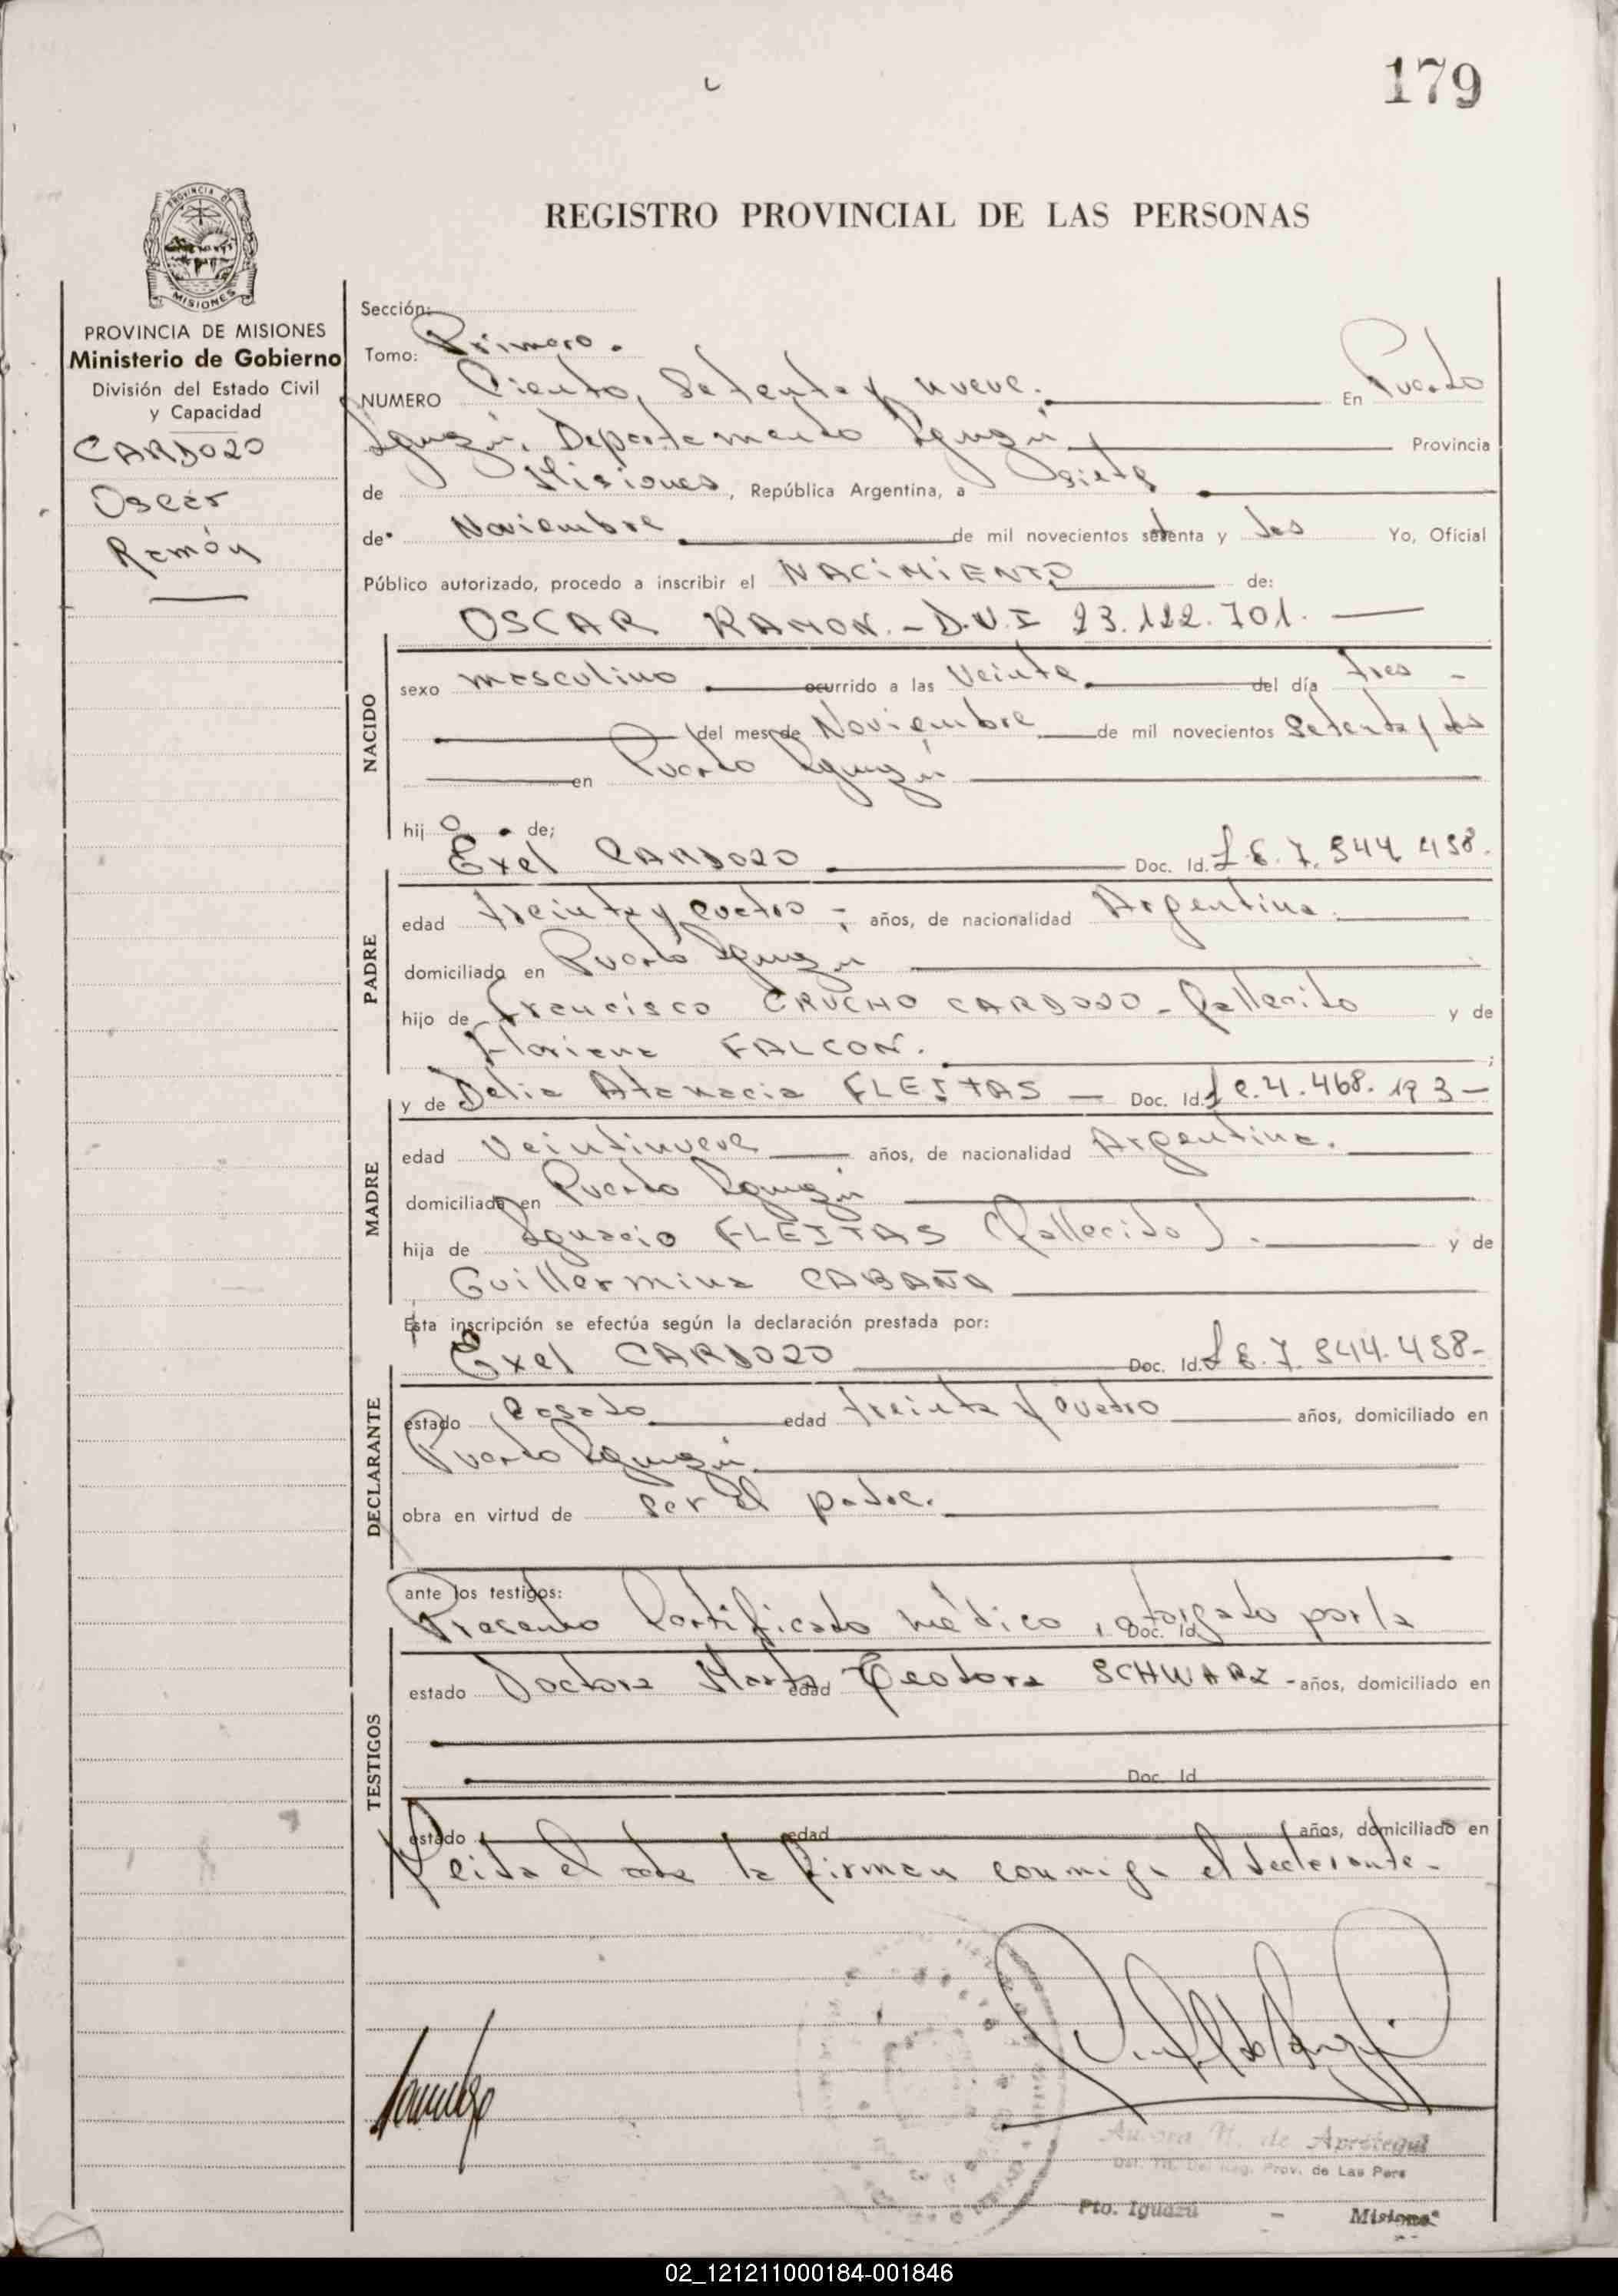 179
REGISTRO PROVINCIAL DE LAS PERSONAS
PROVINCIA DE
MISIONES
PROVINCIA DE MISIONES
Ministerio de Gobierno
División del Estado Civil
y Capacidad
CARDOZO
Oscar
Ramón
Sección:
Tomo: Primero.
NUMERO Ciento Setenta y nueve. En Puerto
Iguazú, Departamento Iguazú, Provincia
de Misiones, República Argentina, a siete
de Noviembre de mil novecientos setenta y dos Yo, Oficial
Público autorizado, procedo a inscribir el NACIMIENTO de:
OSCAR RAMON.- D.N.I 23.122.701.
NACIDO
sexo masculino ocurrido a las Veinte del día tres -
del mes de Noviembre de mil novecientos Setenta y dos
en Puerto Iguazú
hij o de;
Exel CARDOZO Doc. Id. L.E. 7.544.458.
PADRE
edad treinta y cuatro - años, de nacionalidad Argentina.
domiciliado en Puerto Iguazú
hijo de Francisco CRUCHO CARDOZO - fallecido y de
Floriana FALCON. ;
y de Delia Atanacia FLEITAS - Doc. Id. L.C. 4.468.193 -
MADRE
edad Veintinueve años, de nacionalidad Argentina.
domiciliada en Puerto Iguazú
hija de Ignacio FLEITAS (fallecido). y de
Guillermina CABAÑA
Esta inscripción se efectúa según la declaración prestada por:
Exel CARDOZO Doc. Id. L.E. 7.544.458-
DECLARANTE
estado Casado edad treinta y cuatro años, domiciliado en
Puerto Iguazú.
obra en virtud de ser el padre.
ante los testigos:
Presento Certificado médico, otorgado por la
Doc. Id.
TESTIGOS
estado Doctora Marta edad Teodora SCHWARZ - años, domiciliado en
Doc. Id.
estado edad años, domiciliado en
Leida el acta la firman conmigo el declarante.-
Aurora de Apestegui
Prov. de Las Pers
Pto. Iguazú - Misiones
02_121211000184-001846